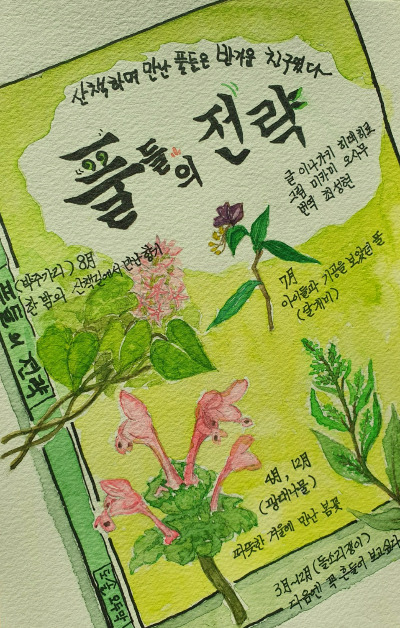 산책하며 만난 풀들은 반가운 친구였다
풀들의 전략
글 이나가키 히데히로
그림 미카미 오사무
번역 최성현
(박주가리) 8월
한 밤의 산책길에서 만난 향기
7월
아이들과 기공을 보았던 풀
(달개비)
풀들의 전략
4월, 12월
(광대나물)
따뜻한 겨울에 만난 봄꽃
도솔 오두막
3월~12월 (들소리쟁이)
다음엔 꼭 흔들어 보고싶다